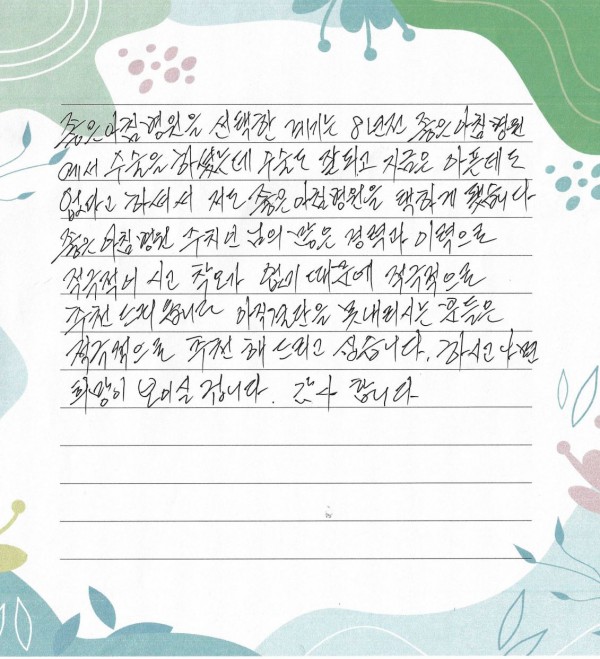 좋은아침병원을 선택한 계기는 8년전 좋은아침병원
에서 수술을 하셨는데 수술도 잘되고 지금은 아픈데도
없다고 하셔서 저도 좋은아침병원을 택하게 됐습니다
좋은아침병원 님의 많은 경력과 이력으로
적극적이 시고 착오가 없기 때문에 적극적으로
추천 드리 왔습니다 아직결단을 못내리시는 분들은
적극적으로 추천 해 드리고 싶습니다. 하시고 나면
희망이 보이실 겁니다. 감사 합니다